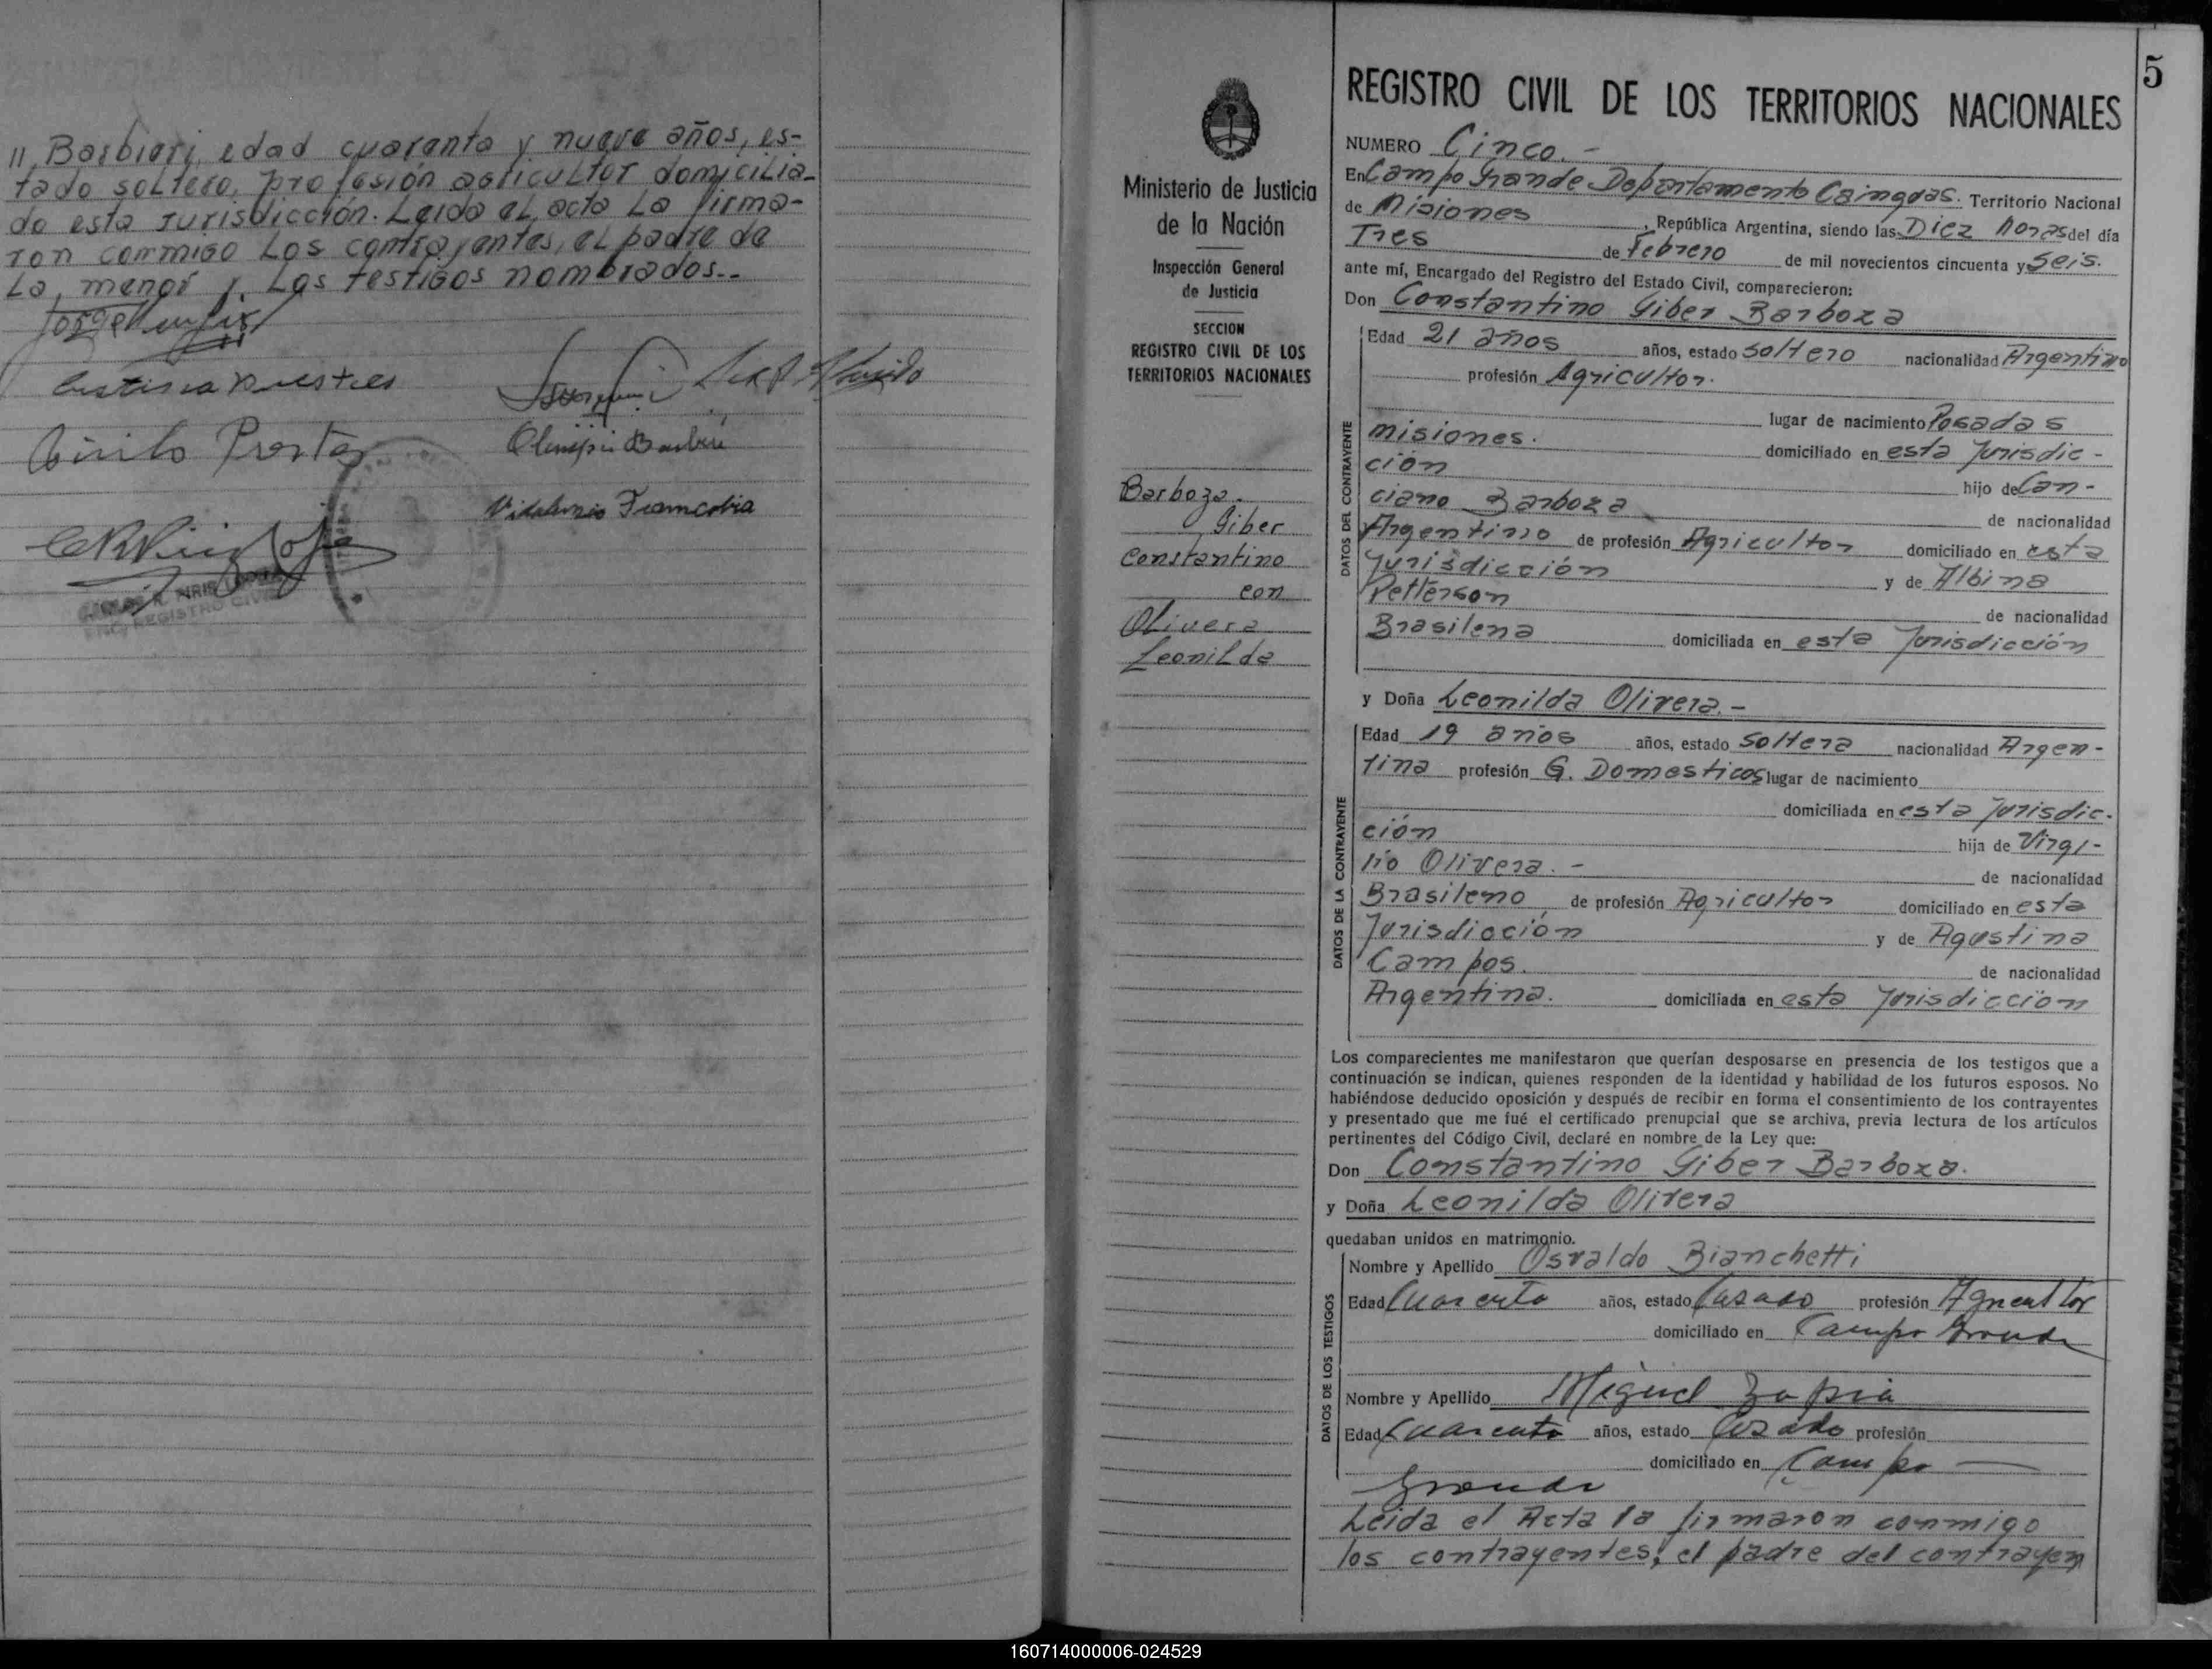 11, Barbieri, edad cuarenta y nueve años, es-
tado soltero, profesión agricultor domicilia-
do esta jurisdicción. Leida el acta La firma-
ron conmigo Los contrayentes, el padre de
La menor y Los testigos nombrados.-
Cirilo Prestes
Olimpio Barbieri
5
REGISTRO CIVIL DE LOS TERRITORIOS NACIONALES
Ministerio de Justicia
de la Nación
Inspección General
de Justicia
SECCION
REGISTRO CIVIL DE LOS
TERRITORIOS NACIONALES
Barboza
Giber
Constantino
con
Olivera
Leonilda
NUMERO Cinco.-
En Campo Grande Departamento Cainguas. Territorio Nacional
de Misiones, República Argentina, siendo las Diez horas del día
Tres de Febrero de mil novecientos cincuenta y Seis.
ante mí, Encargado del Registro del Estado Civil, comparecieron:
Don Constantino Giber Barboza
DATOS DEL CONTRAYENTE
Edad 21 años años, estado Soltero nacionalidad Argentino
profesión Agricultor.
lugar de nacimiento Posadas
misiones. domiciliado en esta Jurisdic-
ción hijo de Can-
ciano Barboza de nacionalidad
Argentino de profesión Agricultor domiciliado en esta
Jurisdicción y de Albina
Petterson de nacionalidad
Brasilena domiciliada en esta Jurisdicción
y Doña Leonilda Olivera.-
DATOS DE LA CONTRAYENTE
Edad 19 años años, estado Soltera nacionalidad Argen-
tina profesión G. Domesticos lugar de nacimiento
domiciliada en esta Jurisdic-
ción hija de Virgi-
lio Olivera.- de nacionalidad
Brasileno de profesión Agricultor domiciliado en esta
Jurisdicción y de Agustina
Campos. de nacionalidad
Argentina. domiciliada en esta Jurisdicción
Los comparecientes me manifestaron que querían desposarse en presencia de los testigos que a
continuación se indican, quienes responden de la identidad y habilidad de los futuros esposos. No
habiéndose deducido oposición y después de recibir en forma el consentimiento de los contrayentes
y presentado que me fué el certificado prenupcial que se archiva, previa lectura de los artículos
pertinentes del Código Civil, declaré en nombre de la Ley que:
Don Constantino Giber Barboza.
y Doña Leonilda Olivera
quedaban unidos en matrimonio.
DATOS DE LOS TESTIGOS
Nombre y Apellido Osvaldo Bianchetti
Edad Cuarenta años, estado Casado profesión Agricultor
domiciliado en Campo Grande
Nombre y Apellido Miguel Zapia
Edad Cuarenta años, estado Casado profesión
domiciliado en Campo
Grande
Leida el Acta la firmaron conmigo
los contrayentes, el padre del contrayen
160714000006-024529